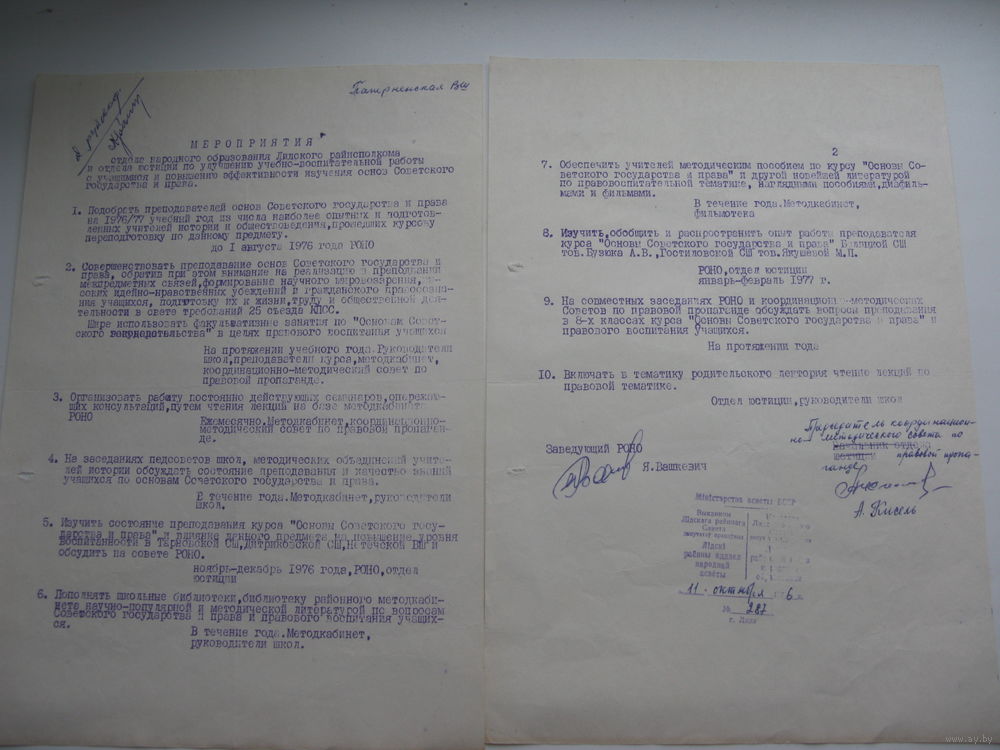 Патерненская ВШ
МЕРОПРИЯТИЯ
отдела народного образования Лидского райисполкома
и отдела юстиции по улучшению учебно-воспитательной работы
с учащимися и повышению эффективности изучения основ Советского
государства и права.
1. Подобрать преподавателей основ Советского государства и права
на 1976/77 учебный год из числа наиболее опытных и подготов-
ленных учителей истории и обществоведения, прошедших курсовую
переподготовку по данному предмету.
до 1 августа 1976 года РОНО
2. Совершенствовать преподавание основ Советского государства и
права, обратив при этом внимание на реализацию в преподавании
межпредметных связей, формирование научного мировоззрения,
ских идейно-нравственных убеждений и гражданского правосозна-
ния учащихся, подготовку их к жизни, труду и общественной дея-
тельности в свете требований 25 съезда КПСС.
Шире использовать факультативные занятия по "Основам Совет-
ского законодательства" в целях правового воспитания учащихся
На протяжении учебного года. Руководители
школ, преподаватели курса, методкабинет,
координационно-методический совет по
правовой пропаганде.
3. Организовать работу постоянно действующих семинаров, опережаю-
щих консультаций, путем чтения лекций на базе методкабинета
РОНО
Ежемесячно. Методкабинет, координационно-
методический совет по правовой пропаган-
де.
4. На заседаниях педсоветов школ, методических объединений учите-
лей истории обсуждать состояние преподавания и качество знаний
учащихся по основам Советского государства и права.
В течение года. Методкабинет, руководители
школ.
5. Изучить состояние преподавания курса "Основы Советского госу-
дарства и права" и влияние данного предмета на повышение уровня
воспитанности в Тарновской СШ, Дитриковской СШ, Нетечской ВШ и
обсудить на совете РОНО.
ноябрь-декабрь 1976 года, РОНО, отдел
юстиции
6. Пополнять школьные библиотеки, библиотеку районного методкаби-
нета научно-популярной и методической литературой по вопросам
Советского государства и права и правового воспитания учащих-
ся.
В течение года. Методкабинет,
руководители школ.
2
7. Обеспечить учителей методическим пособием по курсу "Основы Со-
ветского государства и права" и другой новейшей литературой
по правовоспитательной тематике, наглядными пособиями, диафиль-
мами и фильмами.
В течение года. Методкабинет,
фильмотека
8. Изучить, обобщить и распространить опыт работы преподавателя
курса "Основы Советского государства и права" Белицкой СШ
тов. Бузюка А.В., Гостиловской СШ тов. Якушевой М.П.
РОНО, отдел юстиции
январь-февраль 1977 г.
9. На совместных заседаниях РОНО и координационно-методических
Советов по правовой пропаганде обсуждать вопросы преподавания
в 8-х классах курса "Основы Советского государства и права" и
правового воспитания учащихся.
На протяжении года
10. Включать в тематику родительского лектория чтение лекций по
правовой тематике.
Отдел юстиции, руководители школ
Заведующий РОНО
Я. Вашкевич
координацион-
но методического совета по
Начальник отдела
юстиции правовой пропа-
ганде
А. Кисель
Міністэрства асветы БССР
Выканком
Лідскага раённага
Савета
Лідскі
раённы аддзел
народнай
асветы
11 октября 1976 г.
№ 287
г. Ліда
www.ay.by